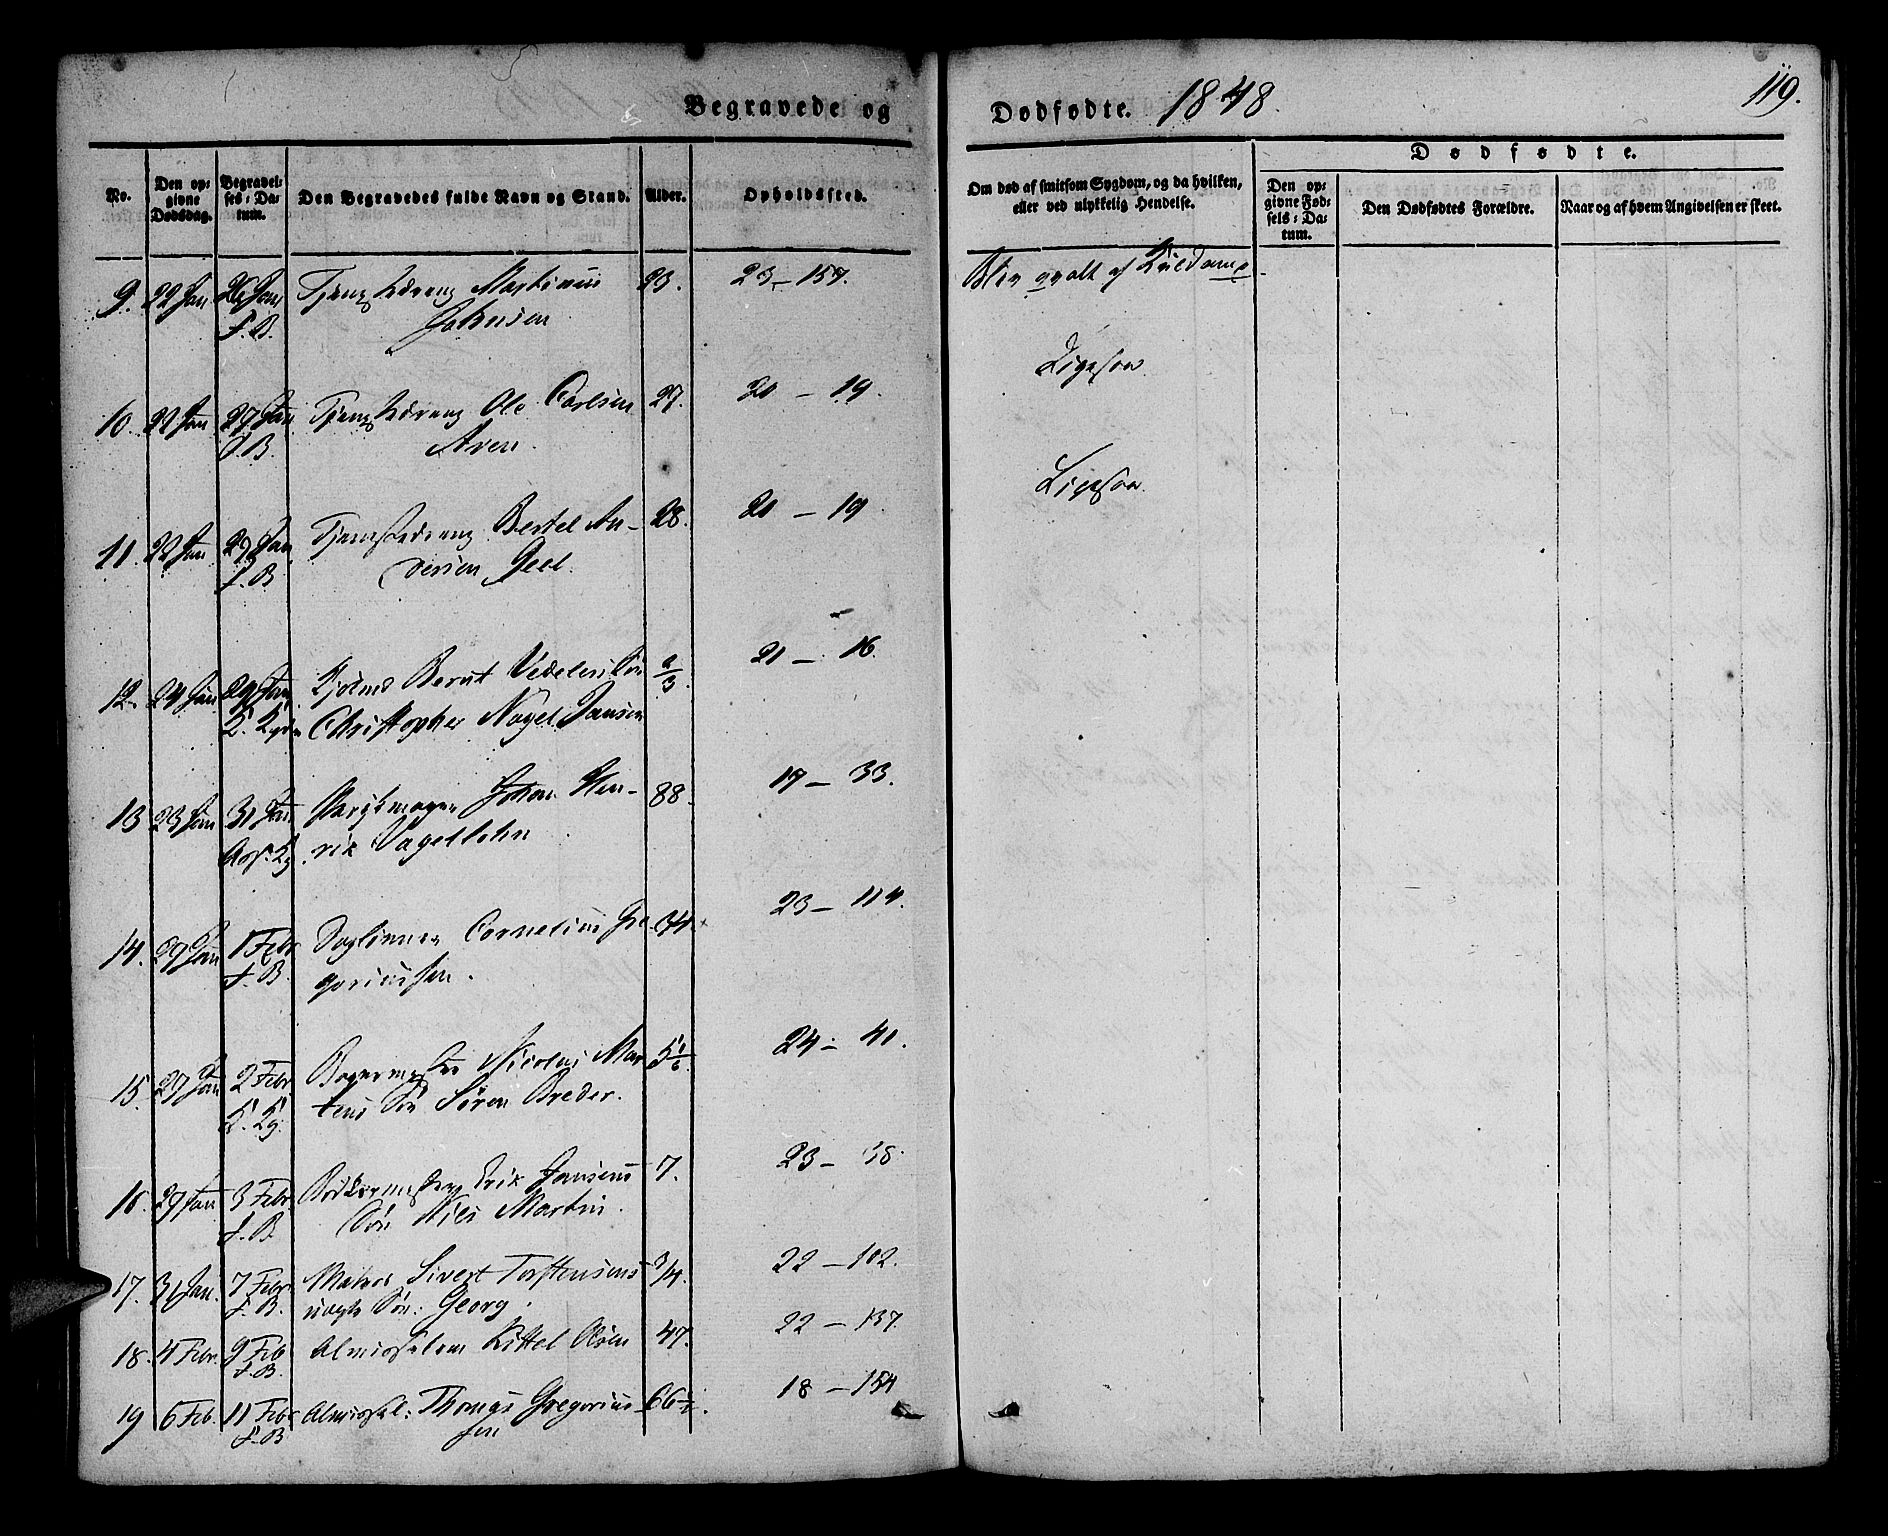 Begravede og Dødfødte. 1848. 119.
No. | Den opgivne Dødsdag. | Begravelses-Datum. | Den Begravedes fulde Navn og Stand. | Alder. | Opholdssted. | Om død af smitsom Sygdom, og da hvilken, eller ved ulykkelig Hendelse. | Dødfødte.
Den opgivne Fødsels-Datum. | Den Dødfødtes Forældre. | Naar og af hvem Angivelsen er skeet.
9. 22 Jan 26 Jan Tjenestedreng Martinus 23. 23 – 157. Blev qvalt af Kuldamp
F. B. Johnsen
Ligesaa
10. 22 Jan 27 Jan Tjenestedreng Ole Carlsen 27. 20 – 19.
F. B. Aven.
Ligesaa
11. 22 Jan 29 Jan Tjenestedreng Bertel An- 28. 20 – 19
F. B. dersen Geel.
12. 24 Jan 29 Jan Berut Vedelers Søn 2/3. 21 – 16.
Christopher Nagel Jansen
13 23 Jan 31 Jan Johan Hen- 88. 17 – 33.
rik Vagelsohn
14. 29 Jan 1 Febr Daglønner Cornelius Gre- 34. 23 – 114.
F. B. goriussen.
15. 27 Jan 2 Febr Bagermester Nicolai Mar 5 1/6. 24 – 41.
tens Søn Søren Breder.
16. 29 Jan 3 Febr. Bødkermester Erik Jansens 7. 23 – 38.
F. B. Søn Nils Martin.
17. 31 Jan. 7 Febr. Matros Sivert Torstensens 3/4. 22 – 102.
F. B. uægte Søn: Georg.
18. 4 Febr. 9 Feb Almisselem Kittel Olsen 47. 22 – 137.
F. B.
19 6 Feb. 11 Febr Almissel: Thomas Gregorius 66 1/2. 18 – 154
F. B sen